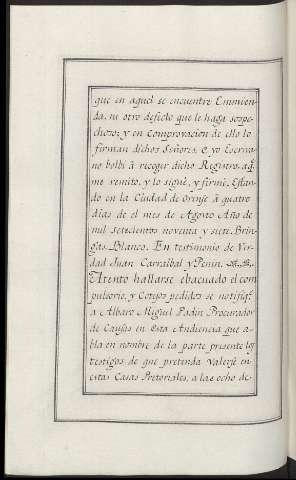 que en aquel se encuentre Enmien-
da, ni otro defecto que le haga sospe-
choso; y en comprovacion de ello lo
firman dichos Señores, e yo Escriva-
no bolbi â recoger dicho Registro, aq.
me remito, y lo signè, y firmè, Estan-
do en la Ciudad de Orense â quatro
dias de el mes de Agosto Año de
mil setecientos noventa y siete. Brin-
gas. Blanco. En testimonio de Ver-
dad Juan Carraibal y Penin.
Atento hallarse ebacuado el com
pulsorio, y Cotejos pedidos se notifiq.
a Albaro Miguel Padin Procurador
de Causas en esta Audiencia que a-
bla en nombre de la parte presente los
testigos de que pretenda Valerse en
estas Casas Pretoriales, a las ocho de-